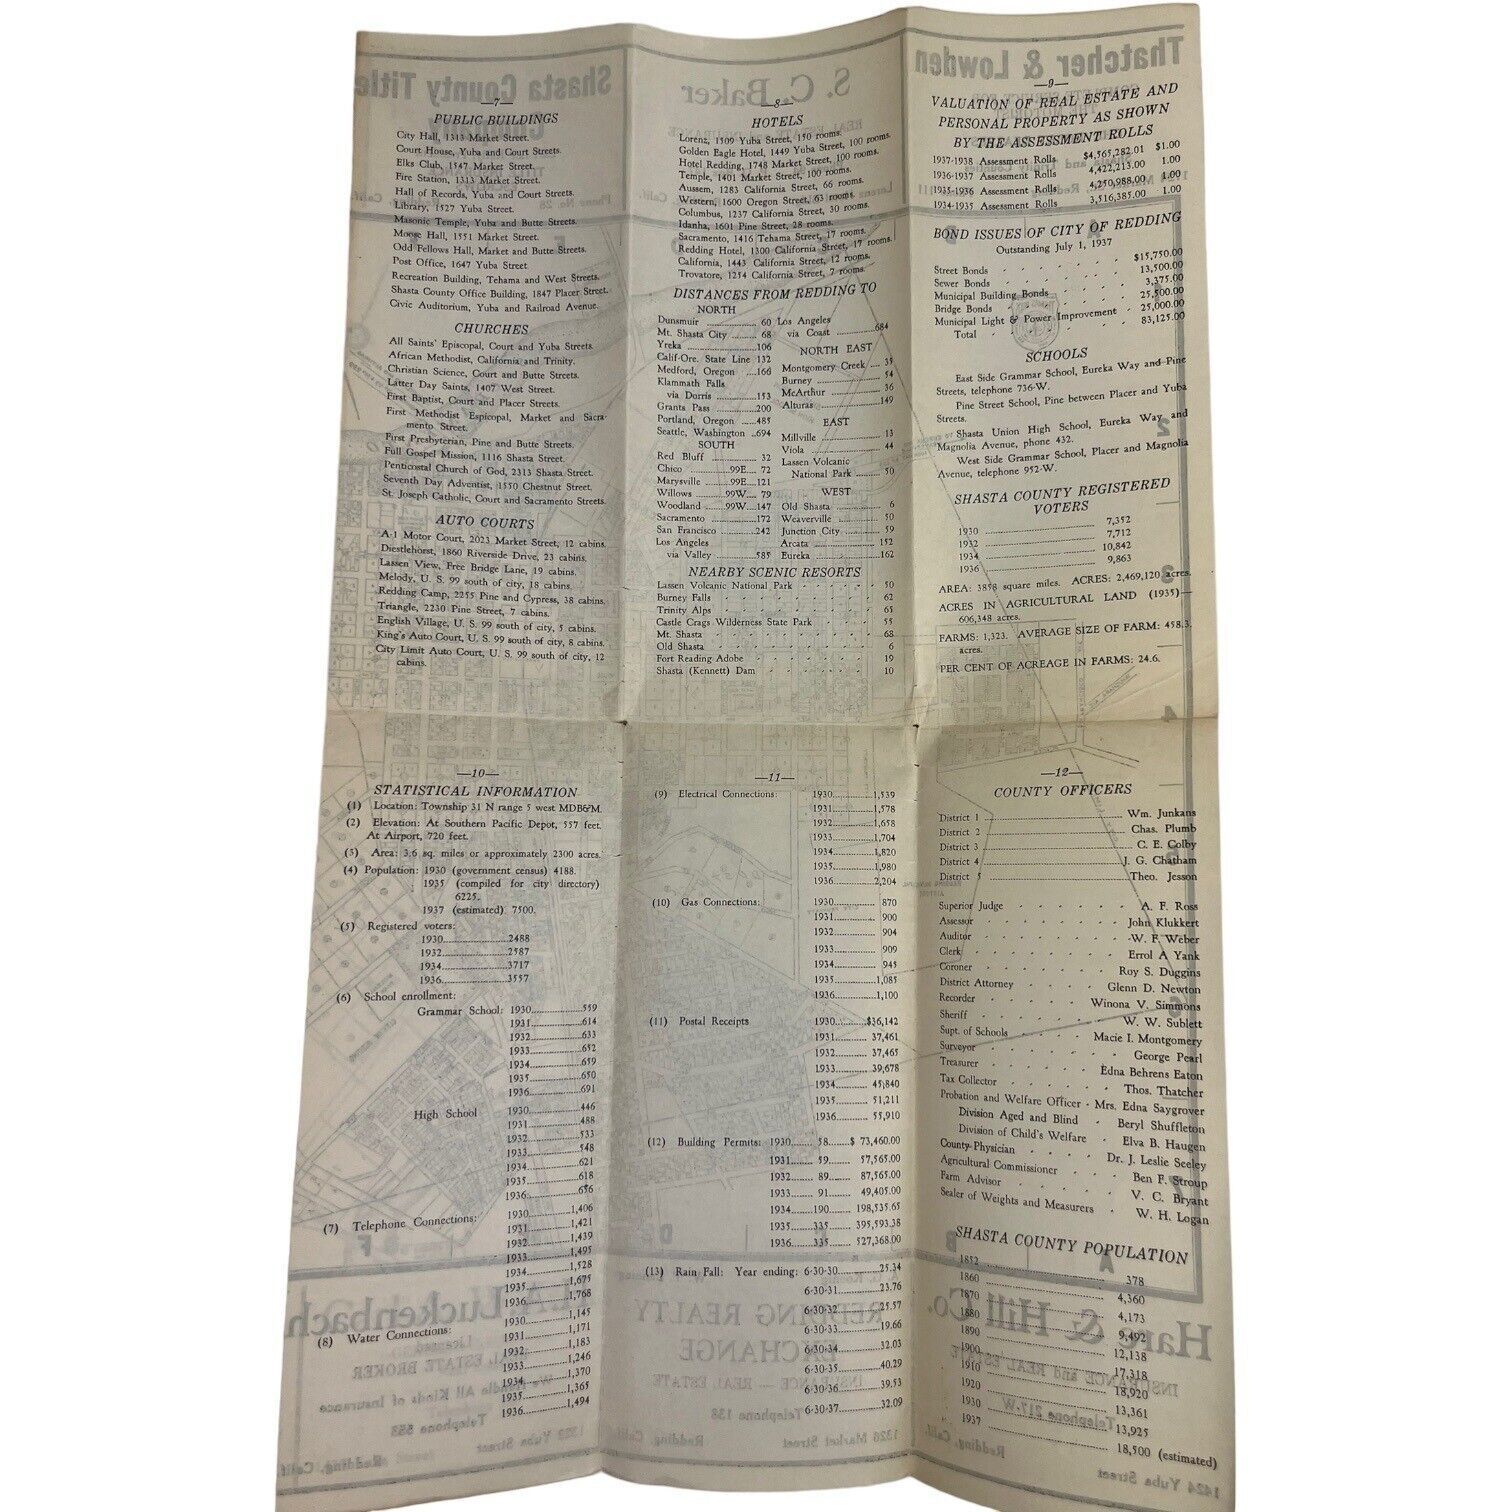 —7—
PUBLIC BUILDINGS
City Hall, 1313 Market Street.
Court House, Yuba and Court Streets.
Elks Club, 1547 Market Street.
Fire Station, 1313 Market Street.
Hall of Records, Yuba and Court Streets.
Library, 1527 Yuba Street.
Masonic Temple, Yuba and Butte Streets.
Moose Hall, 1551 Market Street.
Odd Fellows Hall, Market and Butte Streets.
Post Office, 1647 Yuba Street
Recreation Building, Tehama and West Streets.
Shasta County Office Building, 1847 Placer Street.
Civic Auditorium, Yuba and Railroad Avenue.
CHURCHES
All Saints' Episcopal, Court and Yuba Streets.
African Methodist, California and Trinity.
Christian Science, Court and Butte Streets.
Latter Day Saints, 1407 West Street.
First Baptist, Court and Placer Streets.
First Methodist Espicopal, Market and Sacra-
mento Street.
First Presbyterian, Pine and Butte Streets.
Full Gospel Mission, 1116 Shasta Street.
Penticostal Church of God, 2313 Shasta Street.
Seventh Day Adventist, 1550 Chestnut Street.
St. Joseph Catholic, Court and Sacramento Streets.
AUTO COURTS
A-1 Motor Court, 2023 Market Street, 12 cabins.
Diestlehorst, 1860 Riverside Drive, 23 cabins.
Lassen View, Free Bridge Lane, 19 cabins.
Melody, U. S. 99 south of city, 18 cabins.
Redding Camp, 2255 Pine and Cypress, 38 cabins.
Triangle, 2230 Pine Street, 7 cabins.
English Village, U. S. 99 south of city, 5 cabins.
King's Auto Court, U. S. 99 south of city, 8 cabins.
City Limit Auto Court, U. S. 99 south of city, 12
cabins.
—8—
HOTELS
Lorenz, 1509 Yuba Street, 150 rooms.
Golden Eagle Hotel, 1449 Yuba Street, 100 rooms.
Hotel Redding, 1748 Market Street, 100 rooms.
Temple, 1401 Market Street, 100 rooms.
Aussem, 1283 California Street, 66 rooms.
Western, 1600 Oregon Street, 63 rooms.
Columbus, 1237 California Street, 30 rooms.
Idanha, 1601 Pine Street, 28 rooms.
Sacramento, 1416 Tehama Street, 17 rooms.
Redding Hotel, 1300 California Street, 17 rooms.
California, 1443 California Street, 12 rooms.
Trovatore, 1254 California Street, 7 rooms.
DISTANCES FROM REDDING TO
NORTH
Dunsmuir 60
Mt. Shasta City 68
Yreka 106
Calif-Ore. State Line 132
Medford, Oregon 166
Klammath Falls
via Dorris 153
Grants Pass 200
Portland, Oregon 485
Seattle, Washington 694
SOUTH
Red Bluff 32
Chico 99E 72
Marysville 99E 121
Willows 99W 79
Woodland 99W 147
Sacramento 172
San Francisco 242
Los Angeles
via Valley 585
Los Angeles
via Coast 684
NORTH EAST
Montgomery Creek 35
Burney 54
McArthur 36
Alturas 149
EAST
Millville 13
Viola 44
Lassen Volcanic
National Park 50
WEST
Old Shasta 6
Weaverville 50
Junction City 59
Arcata 152
Eureka 162
NEARBY SCENIC RESORTS
Lassen Volcanic National Park 50
Burney Falls 62
Trinity Alps 65
Castle Crags Wilderness State Park 55
Mt. Shasta 68
Old Shasta 6
Fort Reading Adobe 19
Shasta (Kennett) Dam 10
—9—
VALUATION OF REAL ESTATE AND
PERSONAL PROPERTY AS SHOWN
BY THE ASSESSMENT ROLLS
1937-1938 Assessment Rolls $4,565,282.01 $1.00
1936-1937 Assessment Rolls 4,422,213.00 1.00
1935-1936 Assessment Rolls 4,250,988.00 1.00
1934-1935 Assessment Rolls 3,516,385.00 1.00
BOND ISSUES OF CITY OF REDDING
Outstanding July 1, 1937
Street Bonds $15,750.00
Sewer Bonds 13,500.00
Municipal Building Bonds 3,375.00
Bridge Bonds 25,500.00
Municipal Light & Power Improvement 25,000.00
Total 83,125.00
SCHOOLS
East Side Grammar School, Eureka Way and Pine
Streets, telephone 736-W.
Pine Street School, Pine between Placer and Yuba
Streets.
Shasta Union High School, Eureka Way and
Magnolia Avenue, phone 432.
West Side Grammar School, Placer and Magnolia
Avenue, telephone 952-W.
SHASTA COUNTY REGISTERED
VOTERS
1930 7,352
1932 7,712
1934 10,842
1936 9,863
AREA: 3858 square miles. ACRES: 2,469,120 acres.
ACRES IN AGRICULTURAL LAND (1935)—
606,348 acres.
FARMS: 1,323. AVERAGE SIZE OF FARM: 458.3.
acres.
PER CENT OF ACREAGE IN FARMS: 24.6.
—10—
STATISTICAL INFORMATION
(1) Location: Township 31 N range 5 west MDB&M.
(2) Elevation: At Southern Pacific Depot, 557 feet.
At Airport, 720 feet.
(3) Area: 3.6 sq. miles or approximately 2300 acres.
(4) Population: 1930 (government census) 4188.
1935 (compiled for city directory)
6225.
1937 (estimated) 7500.
(5) Registered voters:
1930 2488
1932 2587
1934 3717
1936 3557
(6) School enrollment:
Grammar School: 1930 559
1931 614
1932 633
1933 652
1934 659
1935 650
1936 691
High School 1930 446
1931 488
1932 533
1933 548
1934 621
1935 618
1936 656
(7) Telephone Connections: 1930 1,406
1931 1,421
1932 1,439
1933 1,495
1934 1,528
1935 1,675
1936 1,768
(8) Water Connections: 1930 1,145
1931 1,171
1932 1,183
1933 1,246
1934 1,370
1935 1,365
1936 1,494
—11—
(9) Electrical Connections: 1930 1,539
1931 1,578
1932 1,658
1933 1,704
1934 1,820
1935 1,980
1936 2,204
(10) Gas Connections: 1930 870
1931 900
1932 904
1933 909
1934 945
1935 1,085
1936 1,100
(11) Postal Receipts 1930 $36,142
1931 37,461
1932 37,465
1933 39,678
1934 45,840
1935 51,211
1936 55,910
(12) Building Permits: 1930 58 $ 73,460.00
1931 59 57,565.00
1932 89 87,565.00
1933 91 49,405.00
1934 190 198,535.65
1935 335 395,593.38
1936 335 527,368.00
(13) Rain Fall: Year ending: 6-30-30 25.34
6-30-31 23.76
6-30-32 25.57
6-30-33 19.66
6-30-34 32.03
6-30-35 40.29
6-30-36 39.53
6-30-37 32.09
—12—
COUNTY OFFICERS
District 1 Wm. Junkans
District 2 Chas. Plumb
District 3 C. E. Colby
District 4 J. G. Chatham
District 5 Theo. Jesson
Superior Judge A. F. Ross
Assessor John Klukkert
Auditor W. F. Weber
Clerk Errol A Yank
Coroner Roy S. Duggins
District Attorney Glenn D. Newton
Recorder Winona V. Simmons
Sheriff W. W. Sublett
Supt. of Schools Macie I. Montgomery
Surveyor George Pearl
Treasurer Edna Behrens Eaton
Tax Collector Thos. Thatcher
Probation and Welfare Officer Mrs. Edna Saygrover
Division Aged and Blind Beryl Shuffleton
Division of Child's Welfare Elva B. Haugen
County Physician Dr. J. Leslie Seeley
Agricultural Commissioner Ben F. Stroup
Farm Advisor V. C. Bryant
Sealer of Weights and Measurers W. H. Logan
SHASTA COUNTY POPULATION
1852 378
1860 4,360
1870 4,173
1880 9,492
1890 12,138
1900 17,318
1910 18,920
1920 13,361
1930 13,925
1937 18,500 (estimated)
Shasta County Title
S. C. Baker
Thatcher & Lowden
Luckenbach
REAL ESTATE BROKER
We Handle All Kinds of Insurance
Telephone 553
Yuba Street
Redding, Calif.
REDDING REALTY
EXCHANGE
INSURANCE — REAL ESTATE
Telephone 138
1326 Market Street
Redding, Calif.
Hare & Hill Co.
INSURANCE and REAL ESTATE
Telephone 217-W
1424 Yuba Street
Redding, Calif.